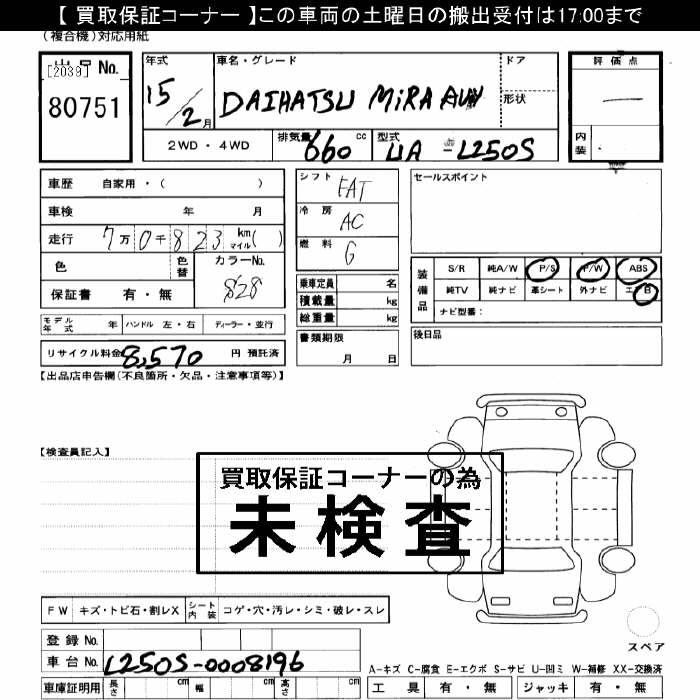 【 買取保証コーナー 】この車両の土曜日の搬出受付は17:00まで
(複合機)対応用紙
出品 No.
[2039]
80751
年式
15/2月
車名・グレード
DAIHATSU MiRA AVY
ドア
形状
評価点
内装
2WD ・ 4WD
排気量 660 cc
型式 UA - L250S
車歴 自家用・( )
車検 年 月
走行 7万0千823 km マイル( )
色 色替 カラーNo. S28
保証書 有・無
シフト FAT
冷房 AC
燃料 G
乗車定員 名
積載量 kg
総重量 kg
書類期限
月 日
セールスポイント
装備品
S/R 純A/W P/S P/W ABS
純TV 純ナビ 革シート 外ナビ エアB
ナビ型番：
後日品
モデル年式 年 ハンドル 左・右 ディーラー・並行
リサイクル料金 8,570 円 預託済
【出品店申告欄(不良箇所・欠品・注意事項等)】
【検査員記入】
買取保証コーナーの為
未検査
FW キズ・トビ石・割レX シート内装 コゲ・穴・汚レ・シミ・破レ・スレ
登録 No.
車台 No. L250S-0008196
車庫証明用 長さ cm 幅 cm 高さ cm
スペア
A-キズ C-腐食 E-エクボ S-サビ U-凹ミ W-補修 XX-交換済
工具 有・無 ジャッキ 有・無